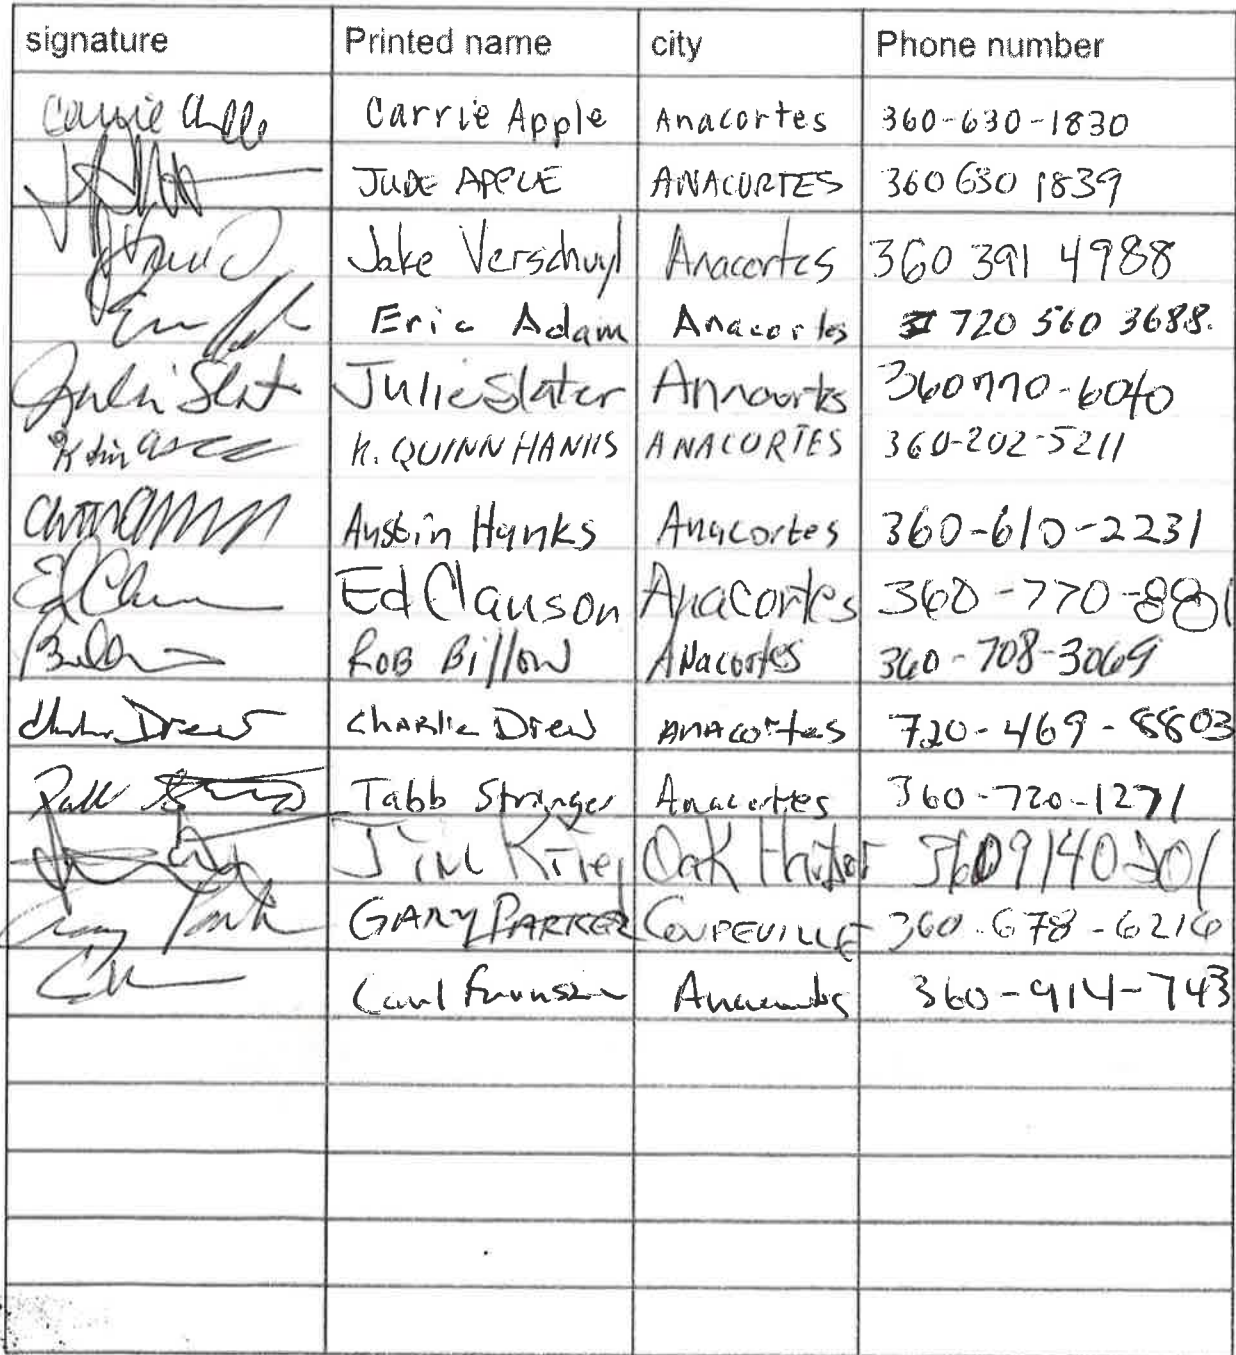 signature Printed name city Phone number
Carrie Apple Carrie Apple Anacortes 360-630-1830
JUDE APPLE ANACORTES 360 630 1839
Jake Verschuyl Anacortes 360 391 4988
Eric Adam Anacortes 720 560 3688.
Julie Slater Anacortes 360 770-6040
K. QUINN HANKS ANACORTES 360-202-5211
Austin Hanks Anacortes 360-610-2231
Ed Clauson Anacortes 360-770-8801
ROB Billow ANacortes 360-708-3069
Drew CHARlie Drew ANACortes 720-469-8803
Tabb Stranger Anacortes 360-720-1271
Jim Oak Harbor 3609140201
GARY PARKER COUPEVILLE 360-678-6216
Carl Anacortes 360-914-743